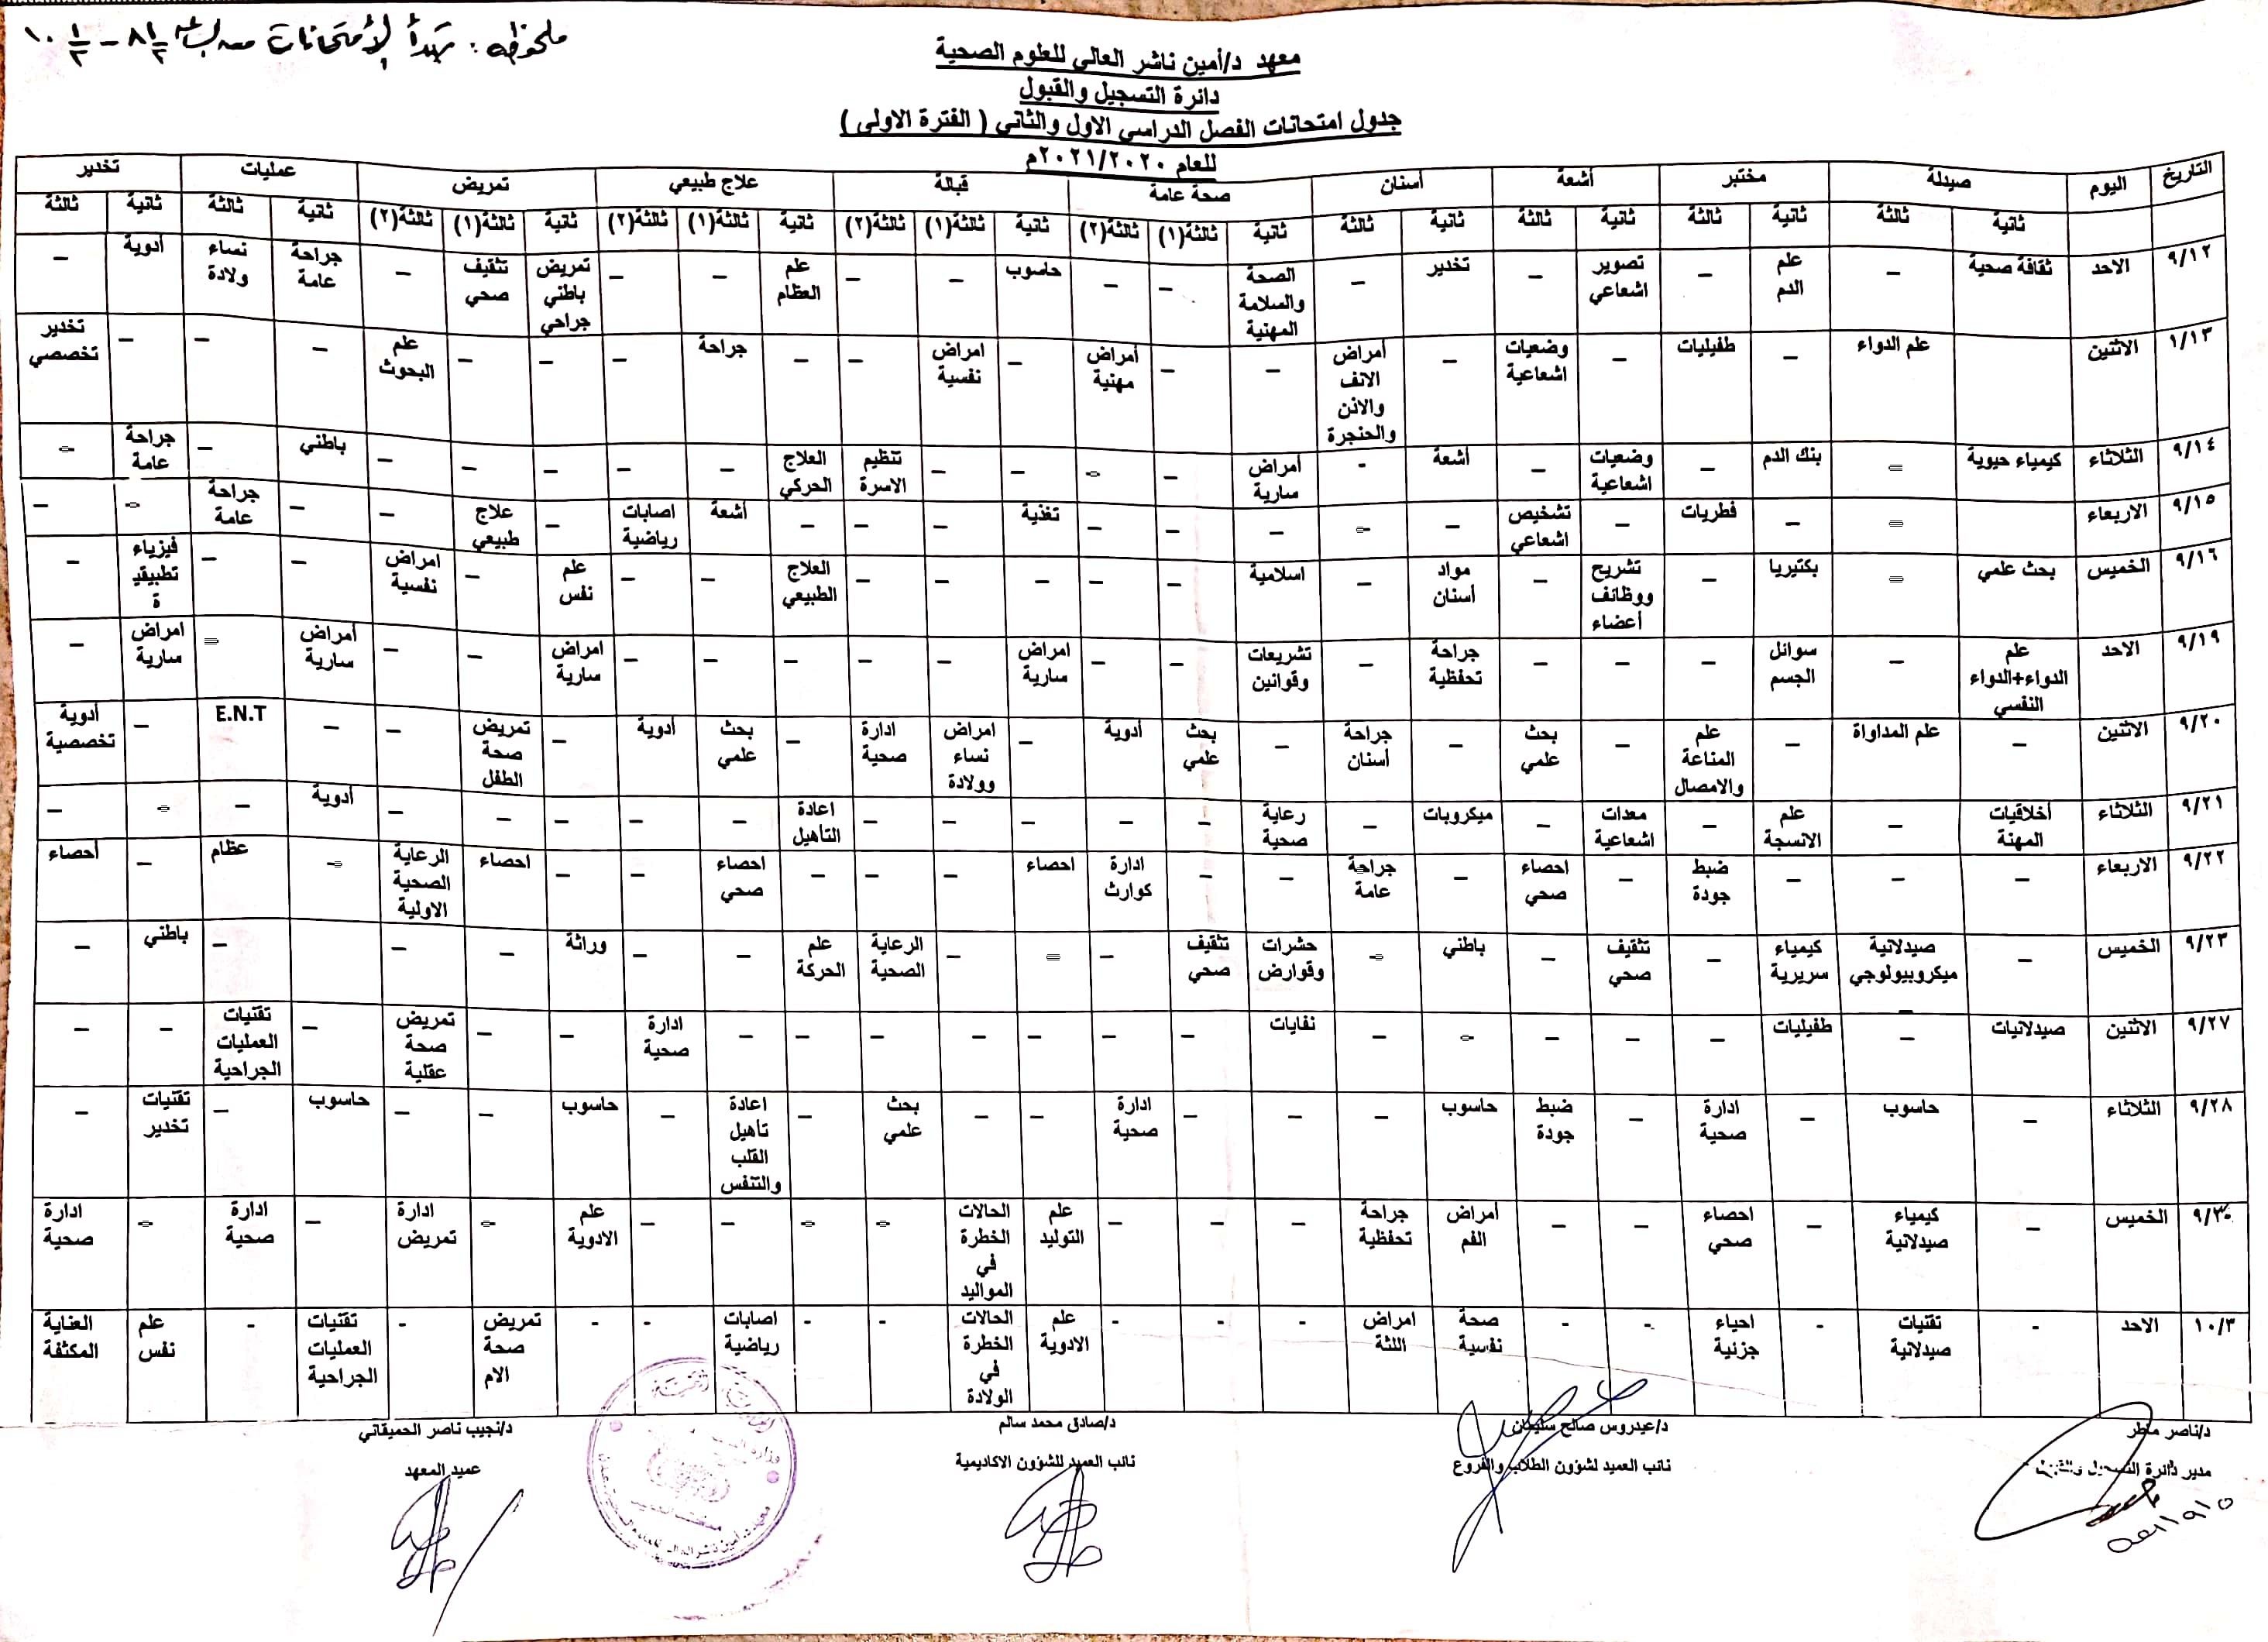 ملحوظه: تبدأ الأمتحانات من الساعة ٨ ١/٢ – ١٠ ١/٢
معهد د/أمين ناشر العالي للعلوم الصحية
دائرة التسجيل والقبول
جدول امتحانات الفصل الدراسي الاول والثاني ( الفترة الاولى )
للعام ٢٠٢١/٢٠٢٠م
التاريخ اليوم صيدلة مختبر أشعة أسنان صحة عامة قبالة علاج طبيعي تمريض عمليات تخدير
ثانية ثالثة ثانية ثالثة ثانية ثالثة ثانية ثالثة ثانية ثالثة(١) ثالثة(٢) ثانية ثالثة(١) ثالثة(٢) ثانية ثالثة(١) ثالثة(٢) ثانية ثالثة(١) ثالثة(٢) ثانية ثالثة ثانية ثالثة
٩/١٢ الاحد ثقافة صحية – علم الدم – تصوير اشعاعي – تخدير – الصحة والسلامة المهنية – – حاسوب – – علم العظام – – تمريض باطني جراحي تثقيف صحي – جراحة عامة نساء ولادة أدوية –
١/١٣ الاثنين علم الدواء – طفيليات – وضعيات اشعاعية – أمراض الانف والاذن والحنجرة – – أمراض مهنية – امراض نفسية – – جراحة – – – علم البحوث – – – تخدير تخصصي
٩/١٤ الثلاثاء كيمياء حيوية = بنك الدم – وضعيات اشعاعية – أشعة - أمراض سارية – = – – تنظيم الاسرة العلاج الحركي – – – – – باطني – جراحة عامة =
٩/١٥ الاربعاء = – فطريات – تشخيص اشعاعي – = – – – تغذية – – – أشعة اصابات رياضية – علاج طبيعي – – جراحة عامة = –
٩/١٦ الخميس بحث علمي = بكتيريا – تشريح ووظائف أعضاء – مواد أسنان – اسلامية – – – – – العلاج الطبيعي – – علم نفس – امراض نفسية – – فيزياء تطبيقية –
٩/١٩ الاحد علم الدواء+الدواء النفسي – سوائل الجسم – – – جراحة تحفظية – تشريعات وقوانين – – امراض سارية – – – – – امراض سارية – – أمراض سارية = امراض سارية –
٩/٢٠ الاثنين – علم المداواة – علم المناعة والامصال – بحث علمي – جراحة أسنان – بحث علمي أدوية – امراض نساء وولادة ادارة صحية – بحث علمي أدوية – تمريض صحة الطفل – – E.N.T – أدوية تخصصية
٩/٢١ الثلاثاء أخلاقيات المهنة – علم الانسجة – معدات اشعاعية – ميكروبات – رعاية صحية – – – – – اعادة التأهيل – – – – – أدوية – = –
٩/٢٢ الاربعاء – – – ضبط جودة – احصاء صحي – جراحة عامة – – ادارة كوارث احصاء – – – احصاء صحي – – احصاء الرعاية الصحية الاولية = عظام – أحصاء
٩/٢٣ الخميس – صيدلانية ميكروبيولوجي كيمياء سريرية – تثقيف صحي – باطني = حشرات وقوارض تثقيف صحي – = – الرعاية الصحية علم الحركة – – وراثة – – – باطني –
٩/٢٧ الاثنين صيدلانيات – طفيليات – – – = – نفايات – – – – – – – ادارة صحية – – تمريض صحة عقلية – تقنيات العمليات الجراحية – –
٩/٢٨ الثلاثاء – حاسوب – ادارة صحية – ضبط جودة حاسوب – – – ادارة صحية – – بحث علمي – اعادة تأهيل القلب والتنفس – حاسوب – – حاسوب – تقنيات تخدير –
٩/٣٠ الخميس – كيمياء صيدلانية – احصاء صحي – – أمراض الفم جراحة تحفظية – – – علم التوليد الحالات الخطرة في المواليد = = – – علم الادوية = ادارة تمريض – ادارة صحية = ادارة صحية
١٠/٣ الاحد - تقنيات صيدلانية - احياء جزئية - - صحة نفسية امراض اللثة - - - علم الادوية الحالات الخطرة في الولادة - - اصابات رياضية - - تمريض صحة الام - تقنيات العمليات الجراحية - علم نفس العناية المكثفة
د/ناصر ماطر د/عيدروس صالح سليمان د/صادق محمد سالم د/نجيب ناصر الحميقاني
مدير دائرة التسجيل والقبول نائب العميد لشؤون الطلاب والفروع نائب العميد للشؤون الاكاديمية عميد المعهد